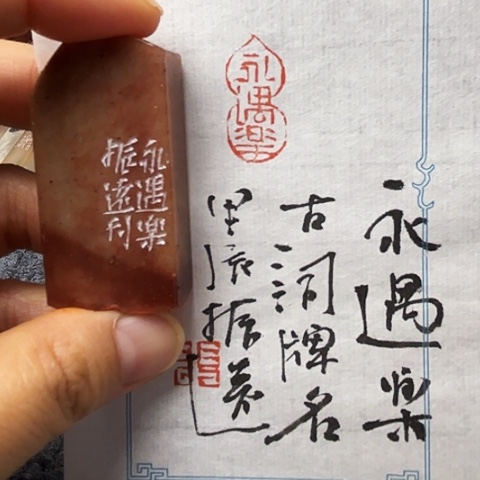 永遇樂
永遇樂
古詞牌名
甲辰振遠
永遇樂
振遠刊